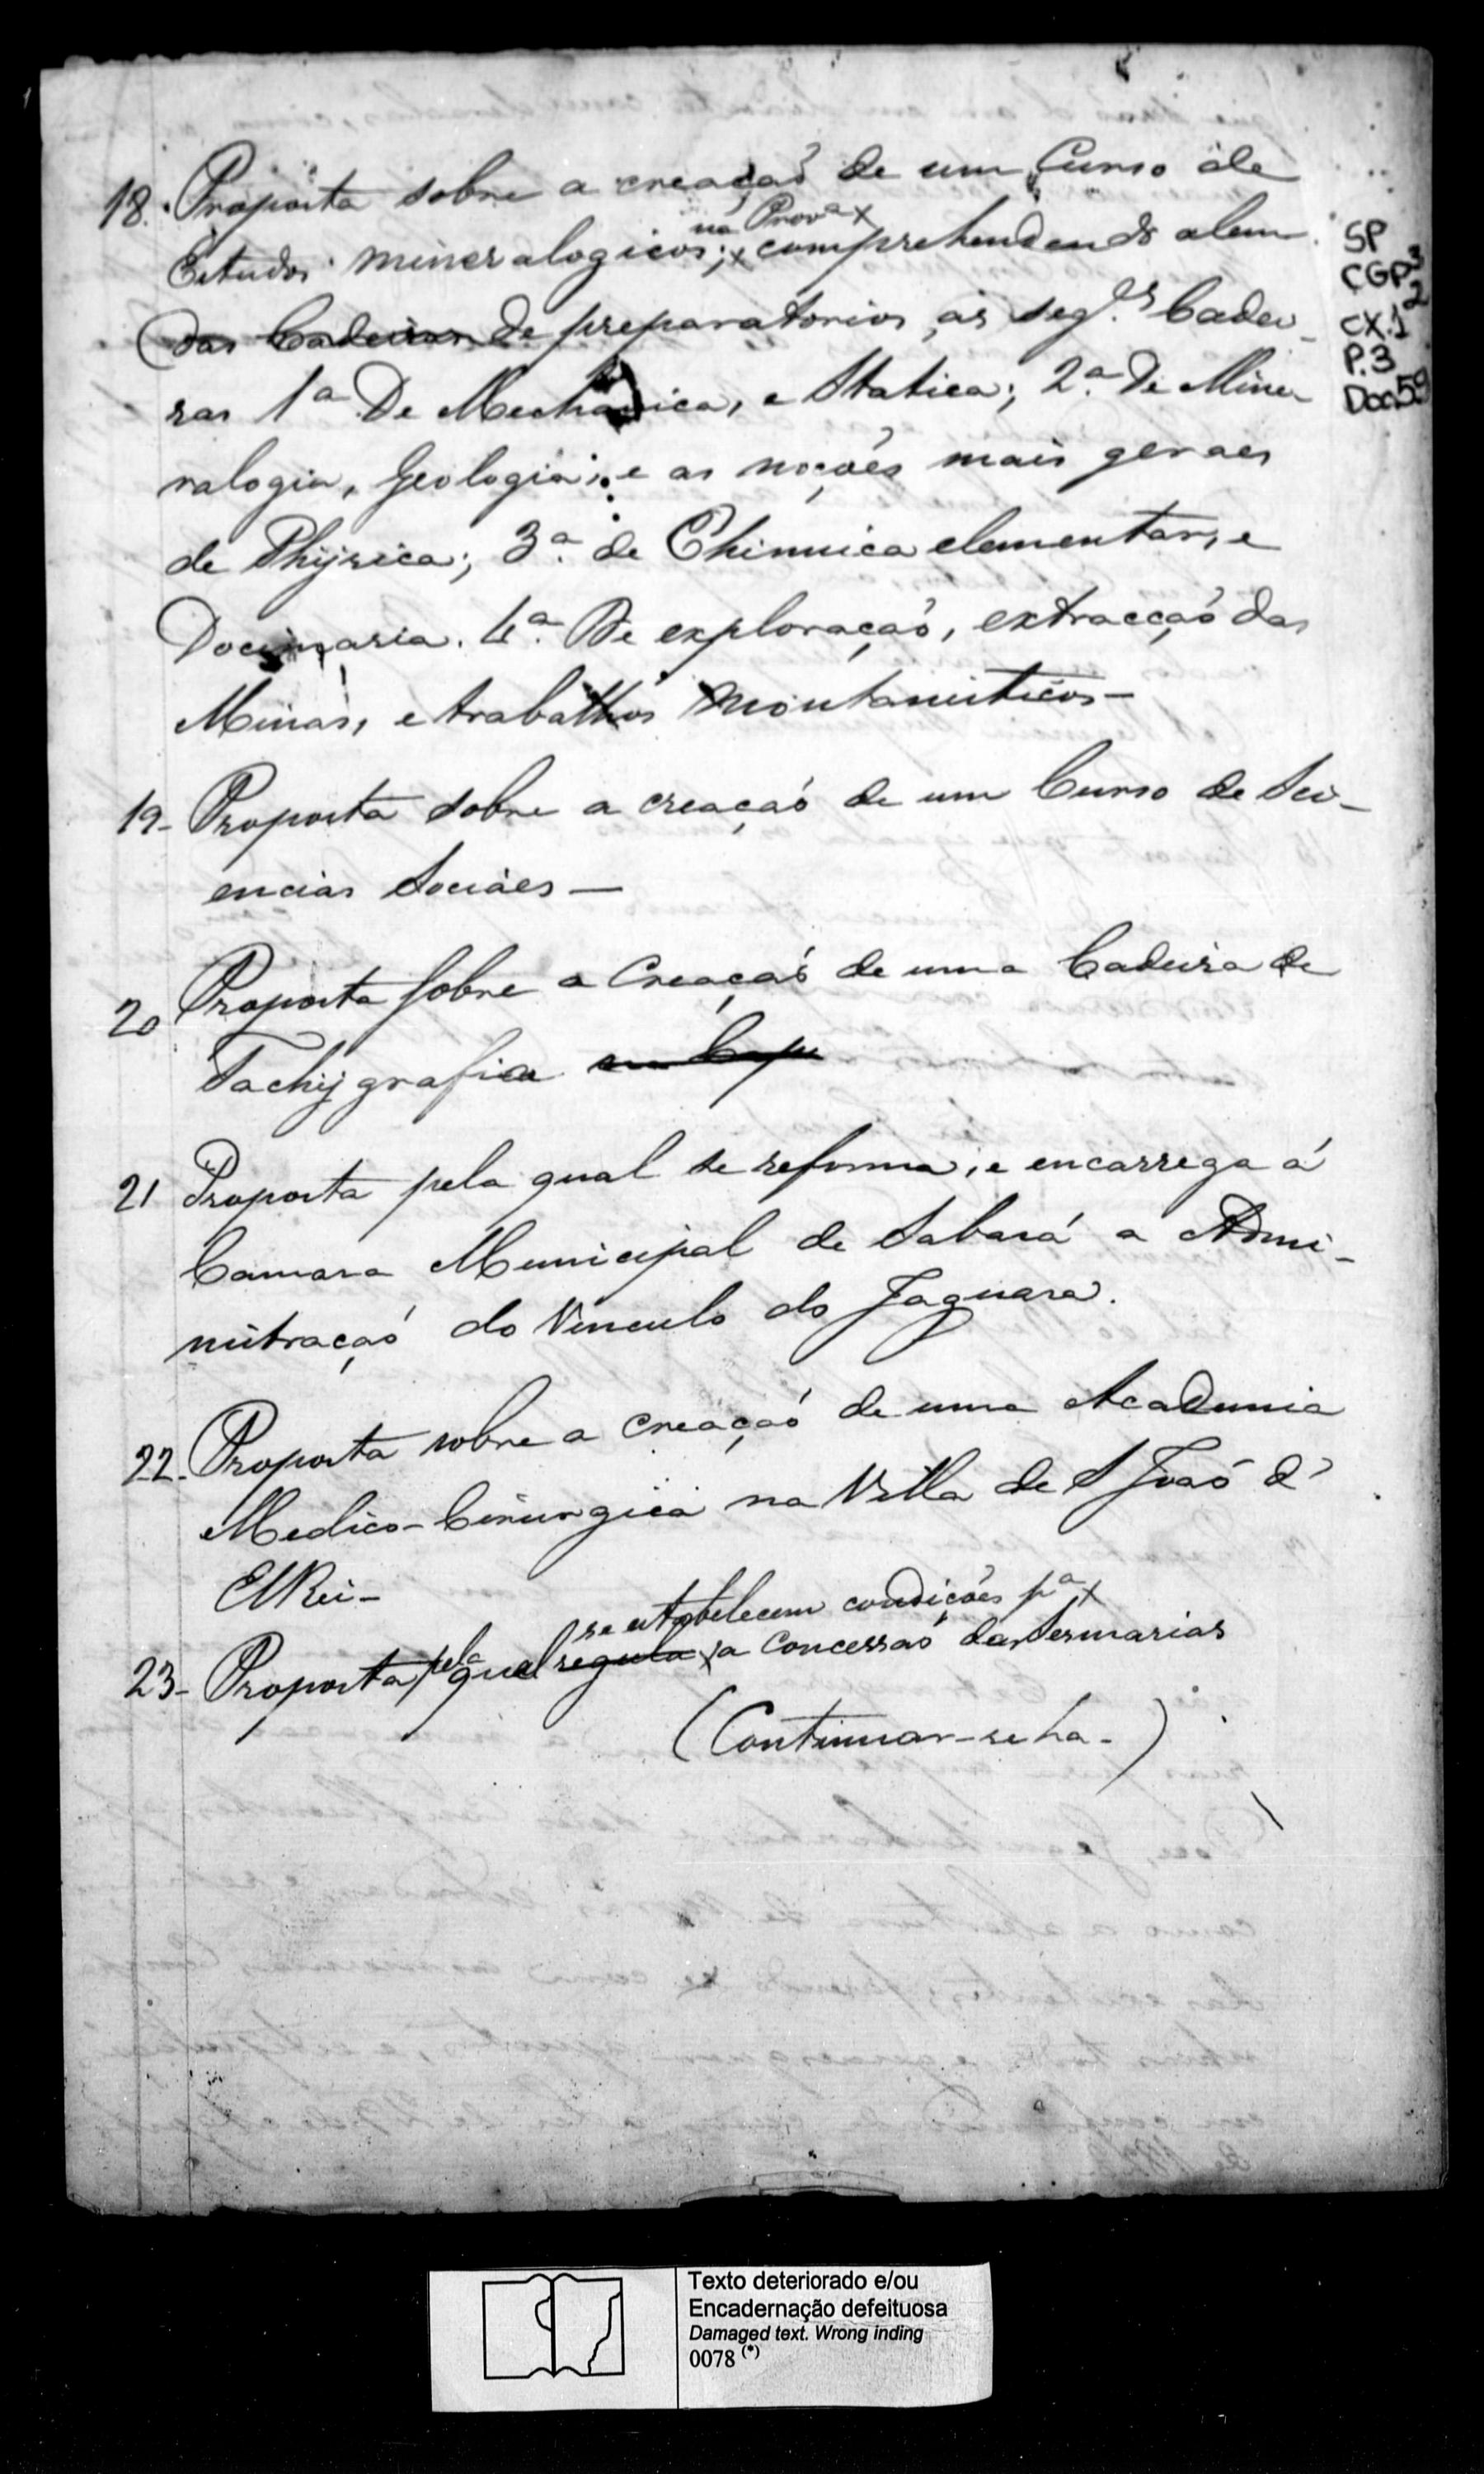 18. Proposta sobre a creaçaó de um Curso de
na Prov.ª x
Estudos mineralogicos; x comprehendendo alem
das Cadeiras de preparatorios, as seg.es Cadei-
ras 1ª De Mechanica, e Statica; 2.ª De Mine-
ralogia, Geologia; e as noçoẽs mais geraes
de Phijsica; 3.ª de Chimica elementar, e
Docimasia. 4.ª De exploraçaó, extracçaó das
Minas, e trabalhos Montanisticos-
19- Proposta sobre a creaçaó de um Curso de Sci-
encias Sociáes-
20 Proposta sobre a Creaçaó de uma Cadeira de
Tachijgrafia
21 Proposta pela qual se reforma, e encarrega á
Camara Municipal de Sabará a Admi-
nistraçaó do Vinculo do Jaguara.
22- Proposta sobre a creaçaó de uma Academia
Medico-Cirurgica na Villa de S Joaó d'
ElRei-
se estabelecem condicões pª x
23- Proposta pela qual regula x a Concessaó das Sesmarias
(Continuar-se ha-)
SP
CGP3
2
CX.1
P.3
Doc.59
Texto deteriorado e/ou
Encadernação defeituosa
Damaged text. Wrong inding
0078 (*)